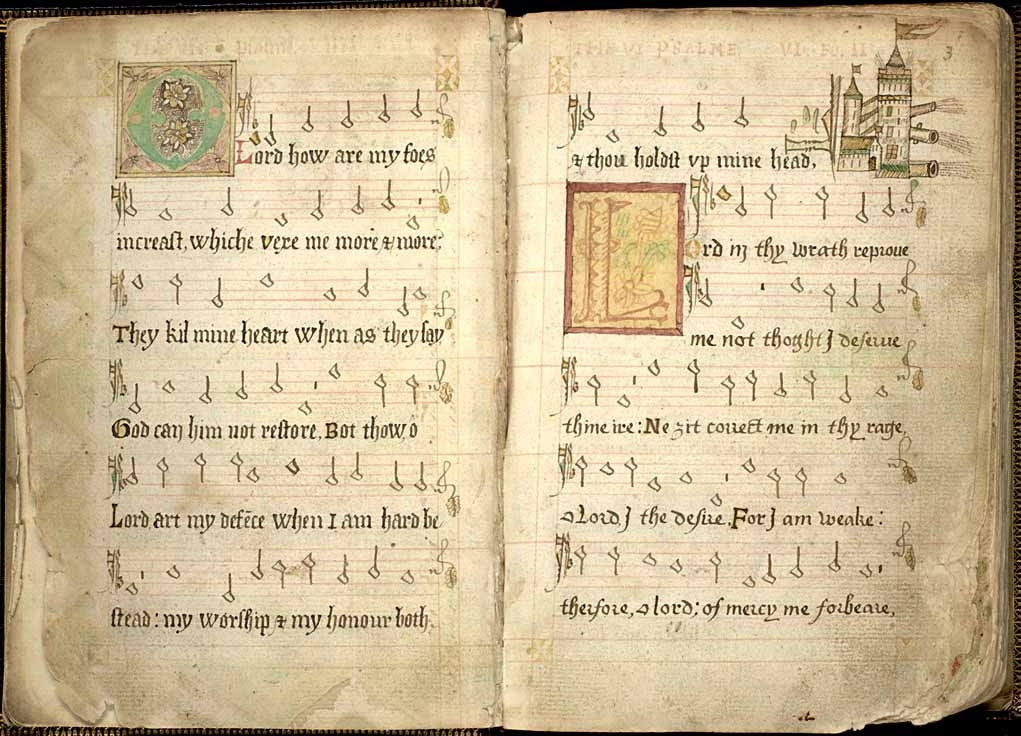 PSALME
O Lord how are my foes
increast, whiche vexe me more & more:
They kil mine heart when as they say
God can him not restore. Bot thow, ô
Lord, art my defēce when I am hard be
stead: my worship & my honour both,
THE VI PSALME VI
3
& thou holdst vp mine head,
Lord in thy wrath reproue
me not thoght J deserue
thine ire: Ne zit correct me in thy rage,
o Lord J the desire. For J am weake:
therfore, o lord; of mercy me forbeare,